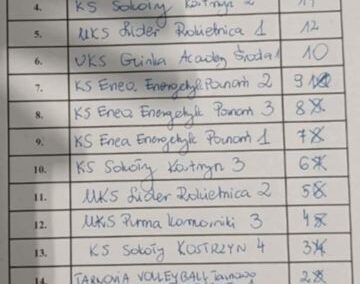 4. KS Sokoły Kostrzyn 2
5. UKS Lider Rokietnica 1 12
6. UKS Grinka Academy Środa 1 10
7. KS Enea Energetyk Poznań 2 9
8. KS Enea Energetyk Poznań 3 8
9. KS Enea Energetyk Poznań 1 7
10. KS Sokoły Kostrzyn 3 6
11. UKS Lider Rokietnica 2 5
12. UKS Puma Komorniki 3 4
13. KS Sokoły KOSTRZYN 4 3
14. TARNOVIA VOLLEYBALL Tarnowo 2